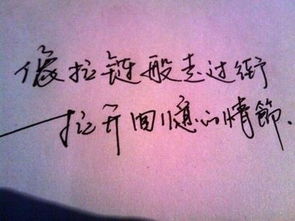 像拉链般走过街
一拉开回憶的情節.